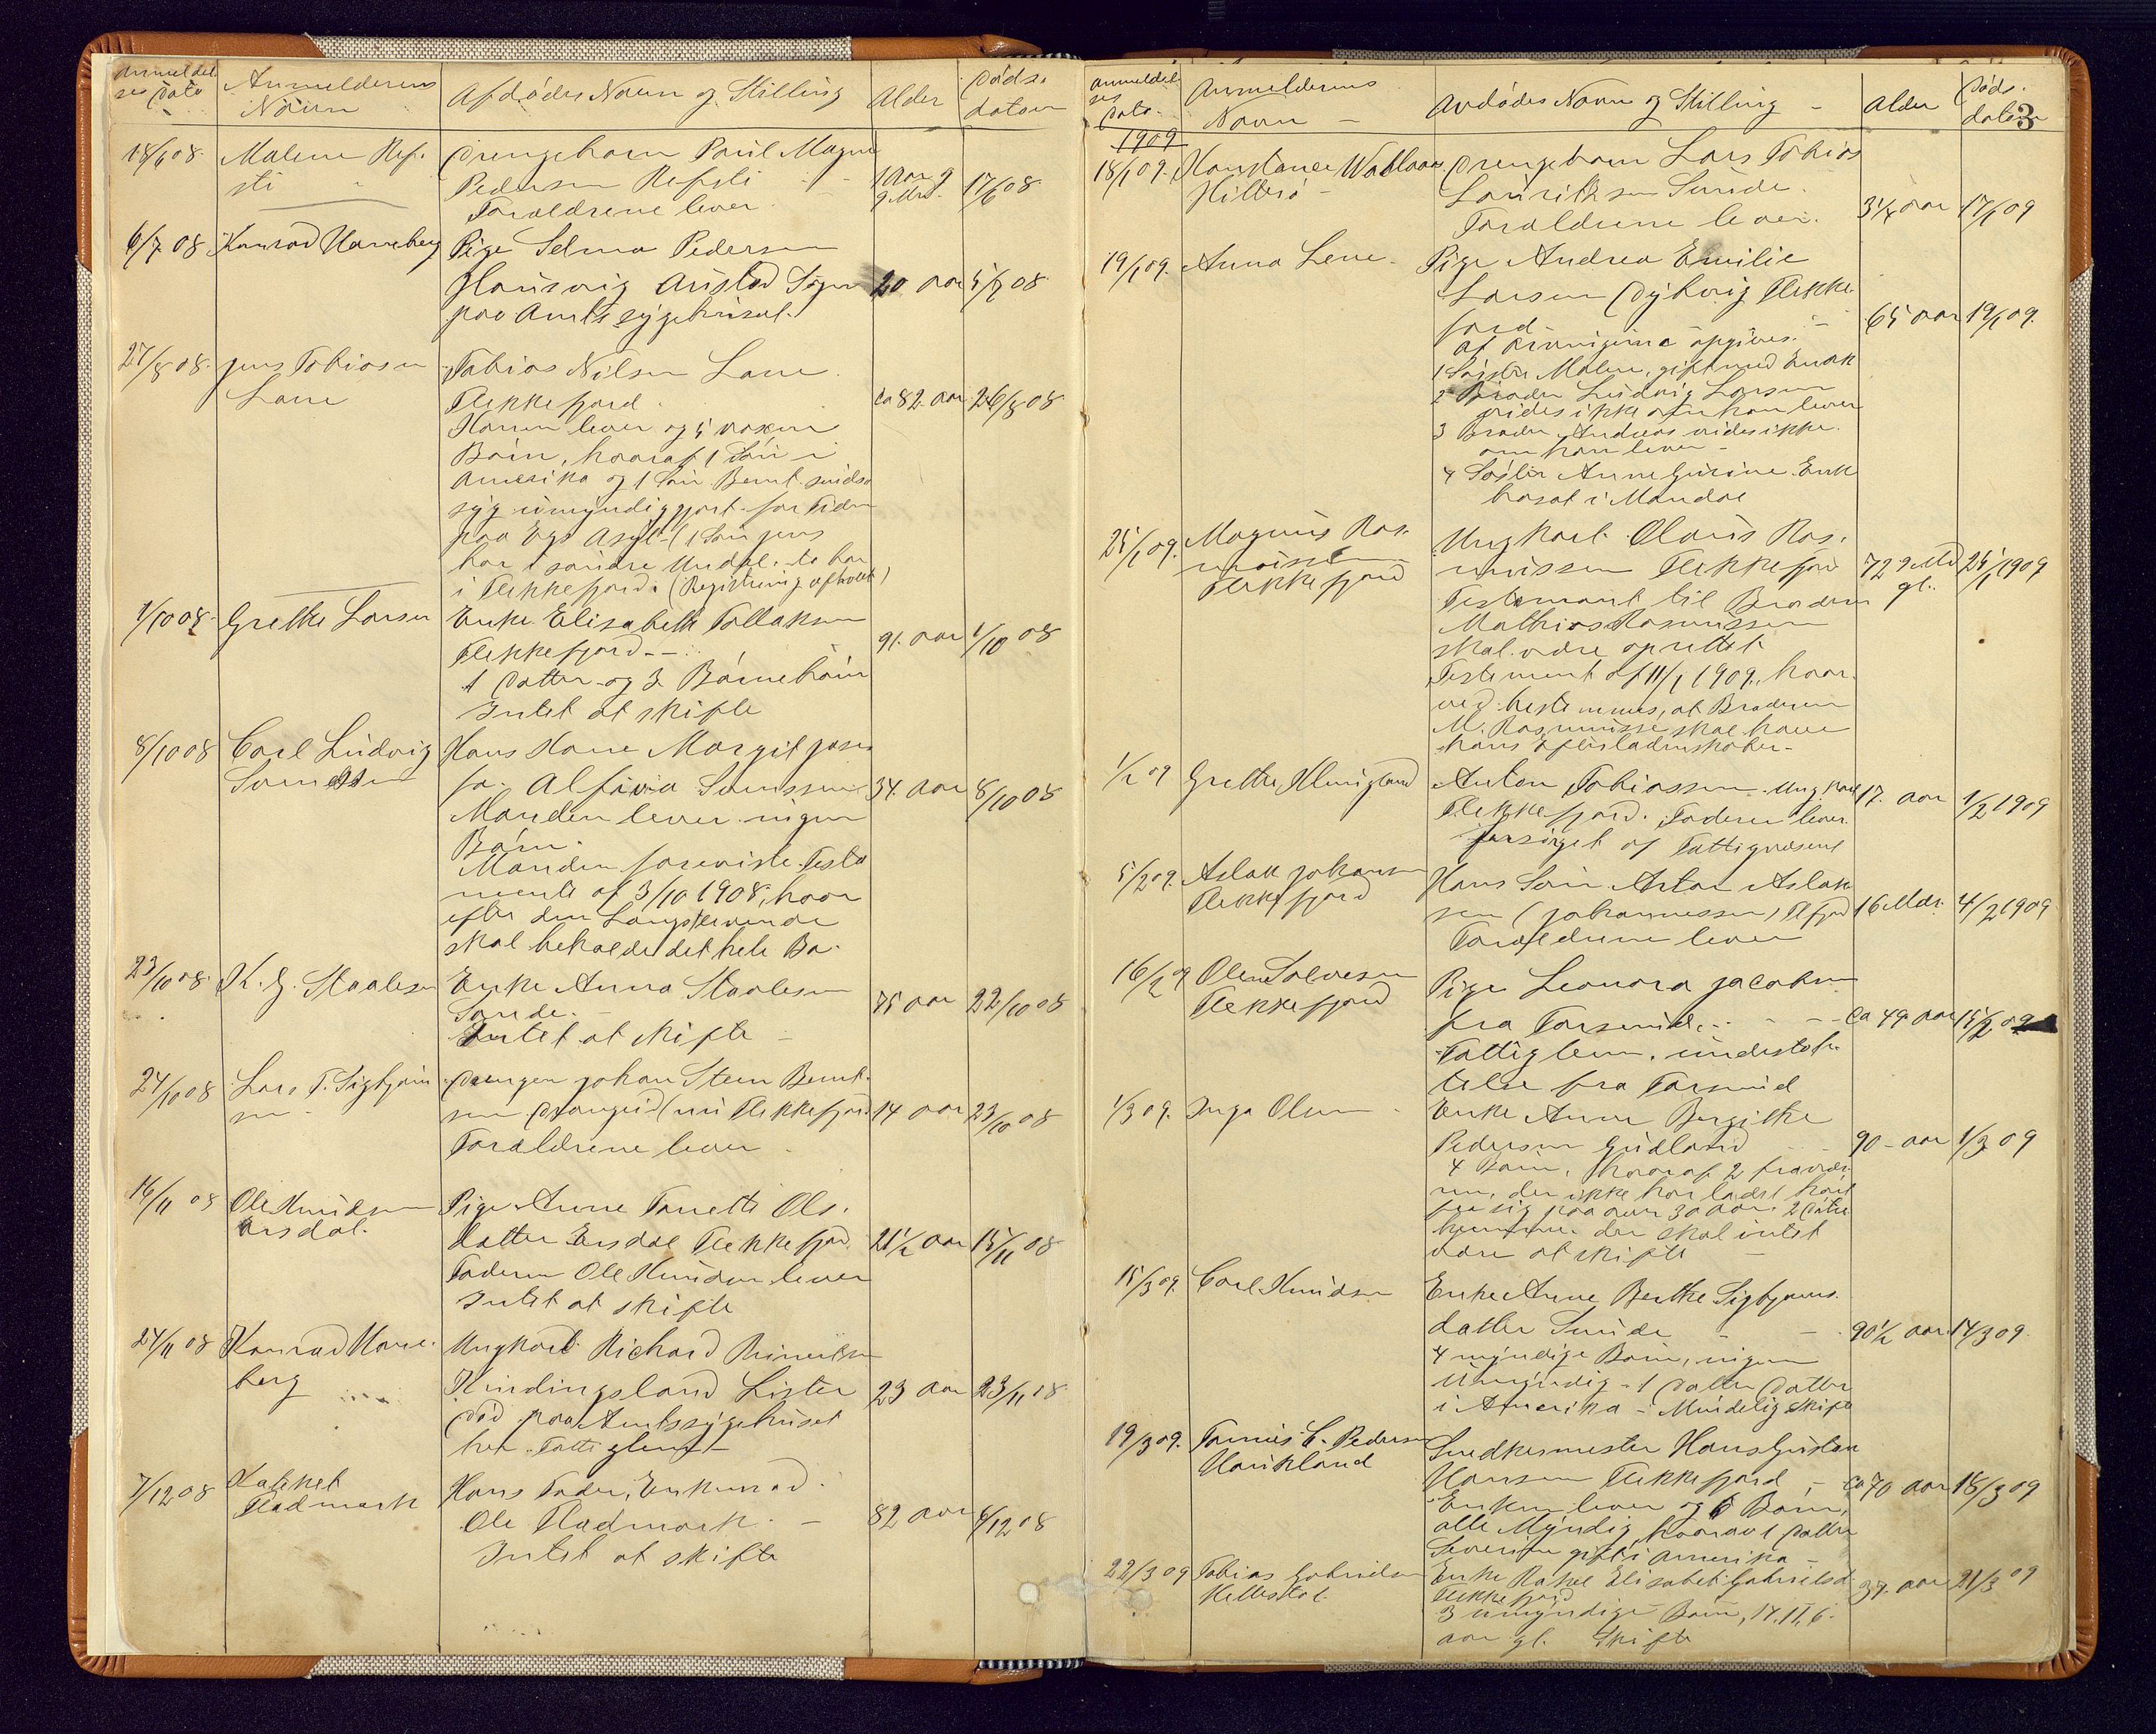 Anmeldel
ses Dato
Anmelderens
Navn
Afdødes Navn og Stilling
Alder
Døds-
datoen
18/6 08. Malene Ref-
sti
Drengebarn Paul Magne
Pedersen Refsti
Forældrene lever
1 Aar 9
Md. 17/6 08
6/7 08 Konrad Haneberg
Pige Selma Pedersen
paa Amtssygehuset.
20 aar 5/7 08
27/8 08. Jens Tobiassen
Lane
Tobias Nilsen Lane
Flekkefjord.
Konen lever og 5 voxne
Børn, hvoraf 1 Søn i
Amerika og 1 Søn Bernt sinds
syg umyndiggjort for Tiden
paa Egs Asyl - (1 Søn Jens
bor i søndre Undal. to bor
i Flekkefjord. (Registrering afholdt)
ca 82 aar 26/8 08
1/10 08. Grethe Larsen
Enke Elisabeth Tollaksen
Flekkefjord - -
1 Datter og 3 Børnebørn
Intet at skifte
91. aar 1/10 08
8/10 08 Carl Ludvig
Hans Kone Margit Jose
fa. Alfina
Manden lever ingen
Børn.
Manden foreviste Testa
mente af 3/10 1908, hvor
efter den Længstlevende
skal beholde det hele Bo.
34. aar 8/10 08
23/10 08. K. G. Staalesen
Enke Anna Staalesen
Sande. -
Intet at skifte -
75 aar 22/10 08
24/10 08 Lars T. Sigbjørn
sen
Drengen Johan Steen Bernt-
sen Drangeid (nu Flekkefjord.
Forældrene lever
14 aar 23/10 08
16/11 08 Ole Knudsen
Ersdal.
Pige Anne Tonette Ols-
datter Ersdal Flekkefjord
Faderen Ole Knudsen lever
Intet at skifte
21½ aar 15/11 08
24/11 08 Konrad Hane-
berg
Ungkarl Richard
Kindingsland Lister
Død paa Amtssygehuset
her. Fattiglemt
23 aar 23/11 08
7/12 08
Fladmark
Hans Fader, Enkemand
Ole Fladmark. -
Intet at skifte
82 aar 6/12 08
3
Anmeldel
ses
Dato.
Anmelderens
Navn -
Avdødes Navn og Stilling -
Alder
Døds-
datoen
1909
18/1 09. Konstance
Hitterø -
Drengebarn Lars Tobias
Lauritzsen Sunde.
Forældrene lever.
3¼ aar 17/1 09
19/1 09. Anna Lene -
Pige Andrea Emilie
Larsen Dybvig Flekke
fjord -
af Arvingerne opgives.
1 Søster Malene, gift med Enok
2 Broder Ludvig Larsen
vides ikke om han lever
3 Broder Andreas vides ikke
om han lever -
4 Søster Anne Gurine Enke
bosat i Mandal
65 aar 19/1 09.
25/1 09. Magnus Ras-
mussen
Flekkefjord
Ungkarl Olaus Ras-
mussen Flekkefjord
Testament til Broderen
Mathias Rasmussen
skal være oprettet
Testament af 11/1 1909, hvor-
ved bestemmes, at Broderen
M. Rasmussen skal have
hans Efterladenskaber -
72 9 Md
gl. 25/1 1909
1/2 09 Grethe
Anton Tobiassen Ungkarl
Flekkefjord. Faderen lever
forsørget af Fattigvæsenet
17. aar 1/2 1909
5/2 09. Aslak Johansen
Flekkefjord
Hans Søn Anton Aslak
sen (Johannessen) Flfjord
Forældrene lever
16 Mdr. 4/2 1909
16/2 9 Olene Salvesen
Flekkefjord
Pige Leonora Jacobsen
fra
Fattiglem, understøt-
telse fra
ca 49 aar 15/2 09
1/3 09. Inga Olsen -
Enke Anne Bergithe
Pedersen Gudland
4 Børn, hvoraf 2 fravær-
ene, der ikke har ladet høre
fra sig paa over 30 aar. 2 Døtre
hjemme. der skal intet
være at skifte -
90 - aar 1/3 09
15/3 09. Carl Knudsen
Enke Anne Berthe Sigbjørns
datter Sunde - -
4 myndige Børn, ingen
Umyndig - 1 Datter Datter
i Amerika - Mindelig Skifte
90½ aar. 14/3 09.
19/3 09. C. Pedersen
Haukland
Snedkermester Hans Gustav
Hansen Flekkefjord, -
Enken lever og 6 Børn,
alle Myndig hvorav 1 Datter
Severine gift i Amerika -
ca 70 aar 18/3 09
22/3 09 Tobias Gabrielsen
Enke Rakel Elisabet Gabrielsd
Flekkefjord
3 umyndige Børn, 14. 11, 6.
aar gl. Skifte
37. aar 21/3 09